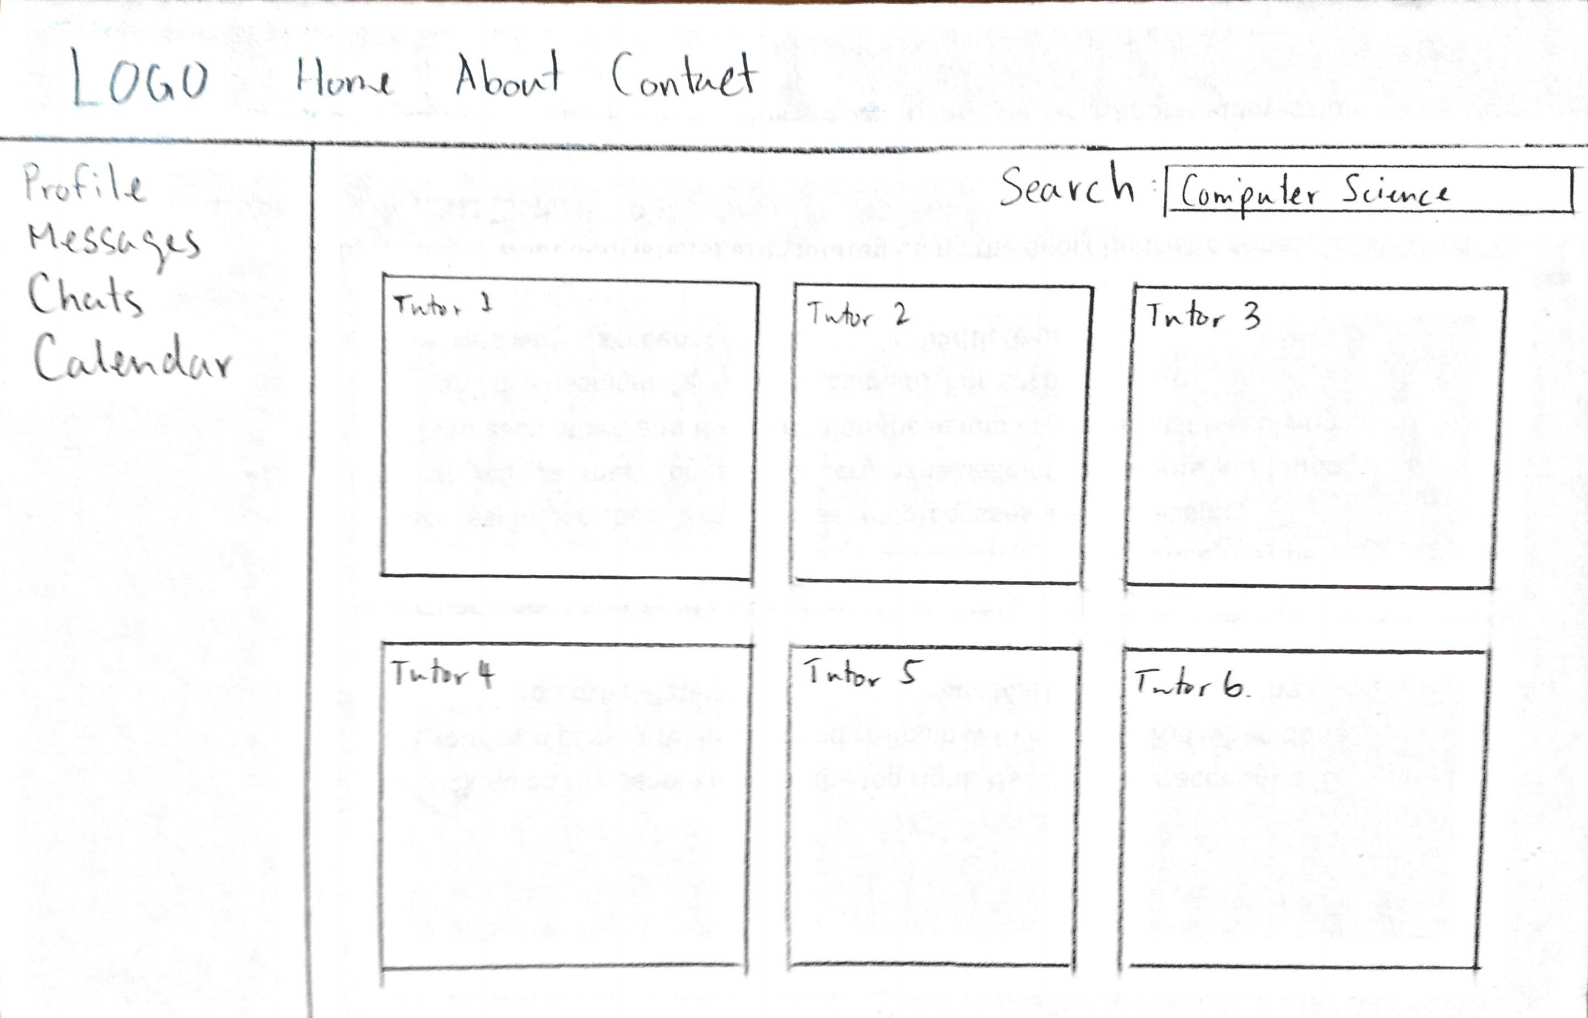 LOGO Home About Contact
Profile
Messages
Chats
Calendar
Search : Computer Science
Tutor 1 Tutor 2 Tutor 3
Tutor 4 Tutor 5 Tutor 6.